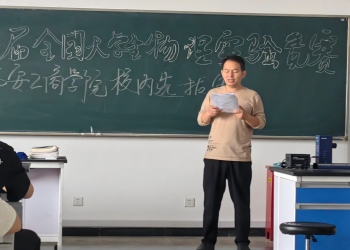 届全国大学生物理实验竞赛
西安工商学院校内选拔